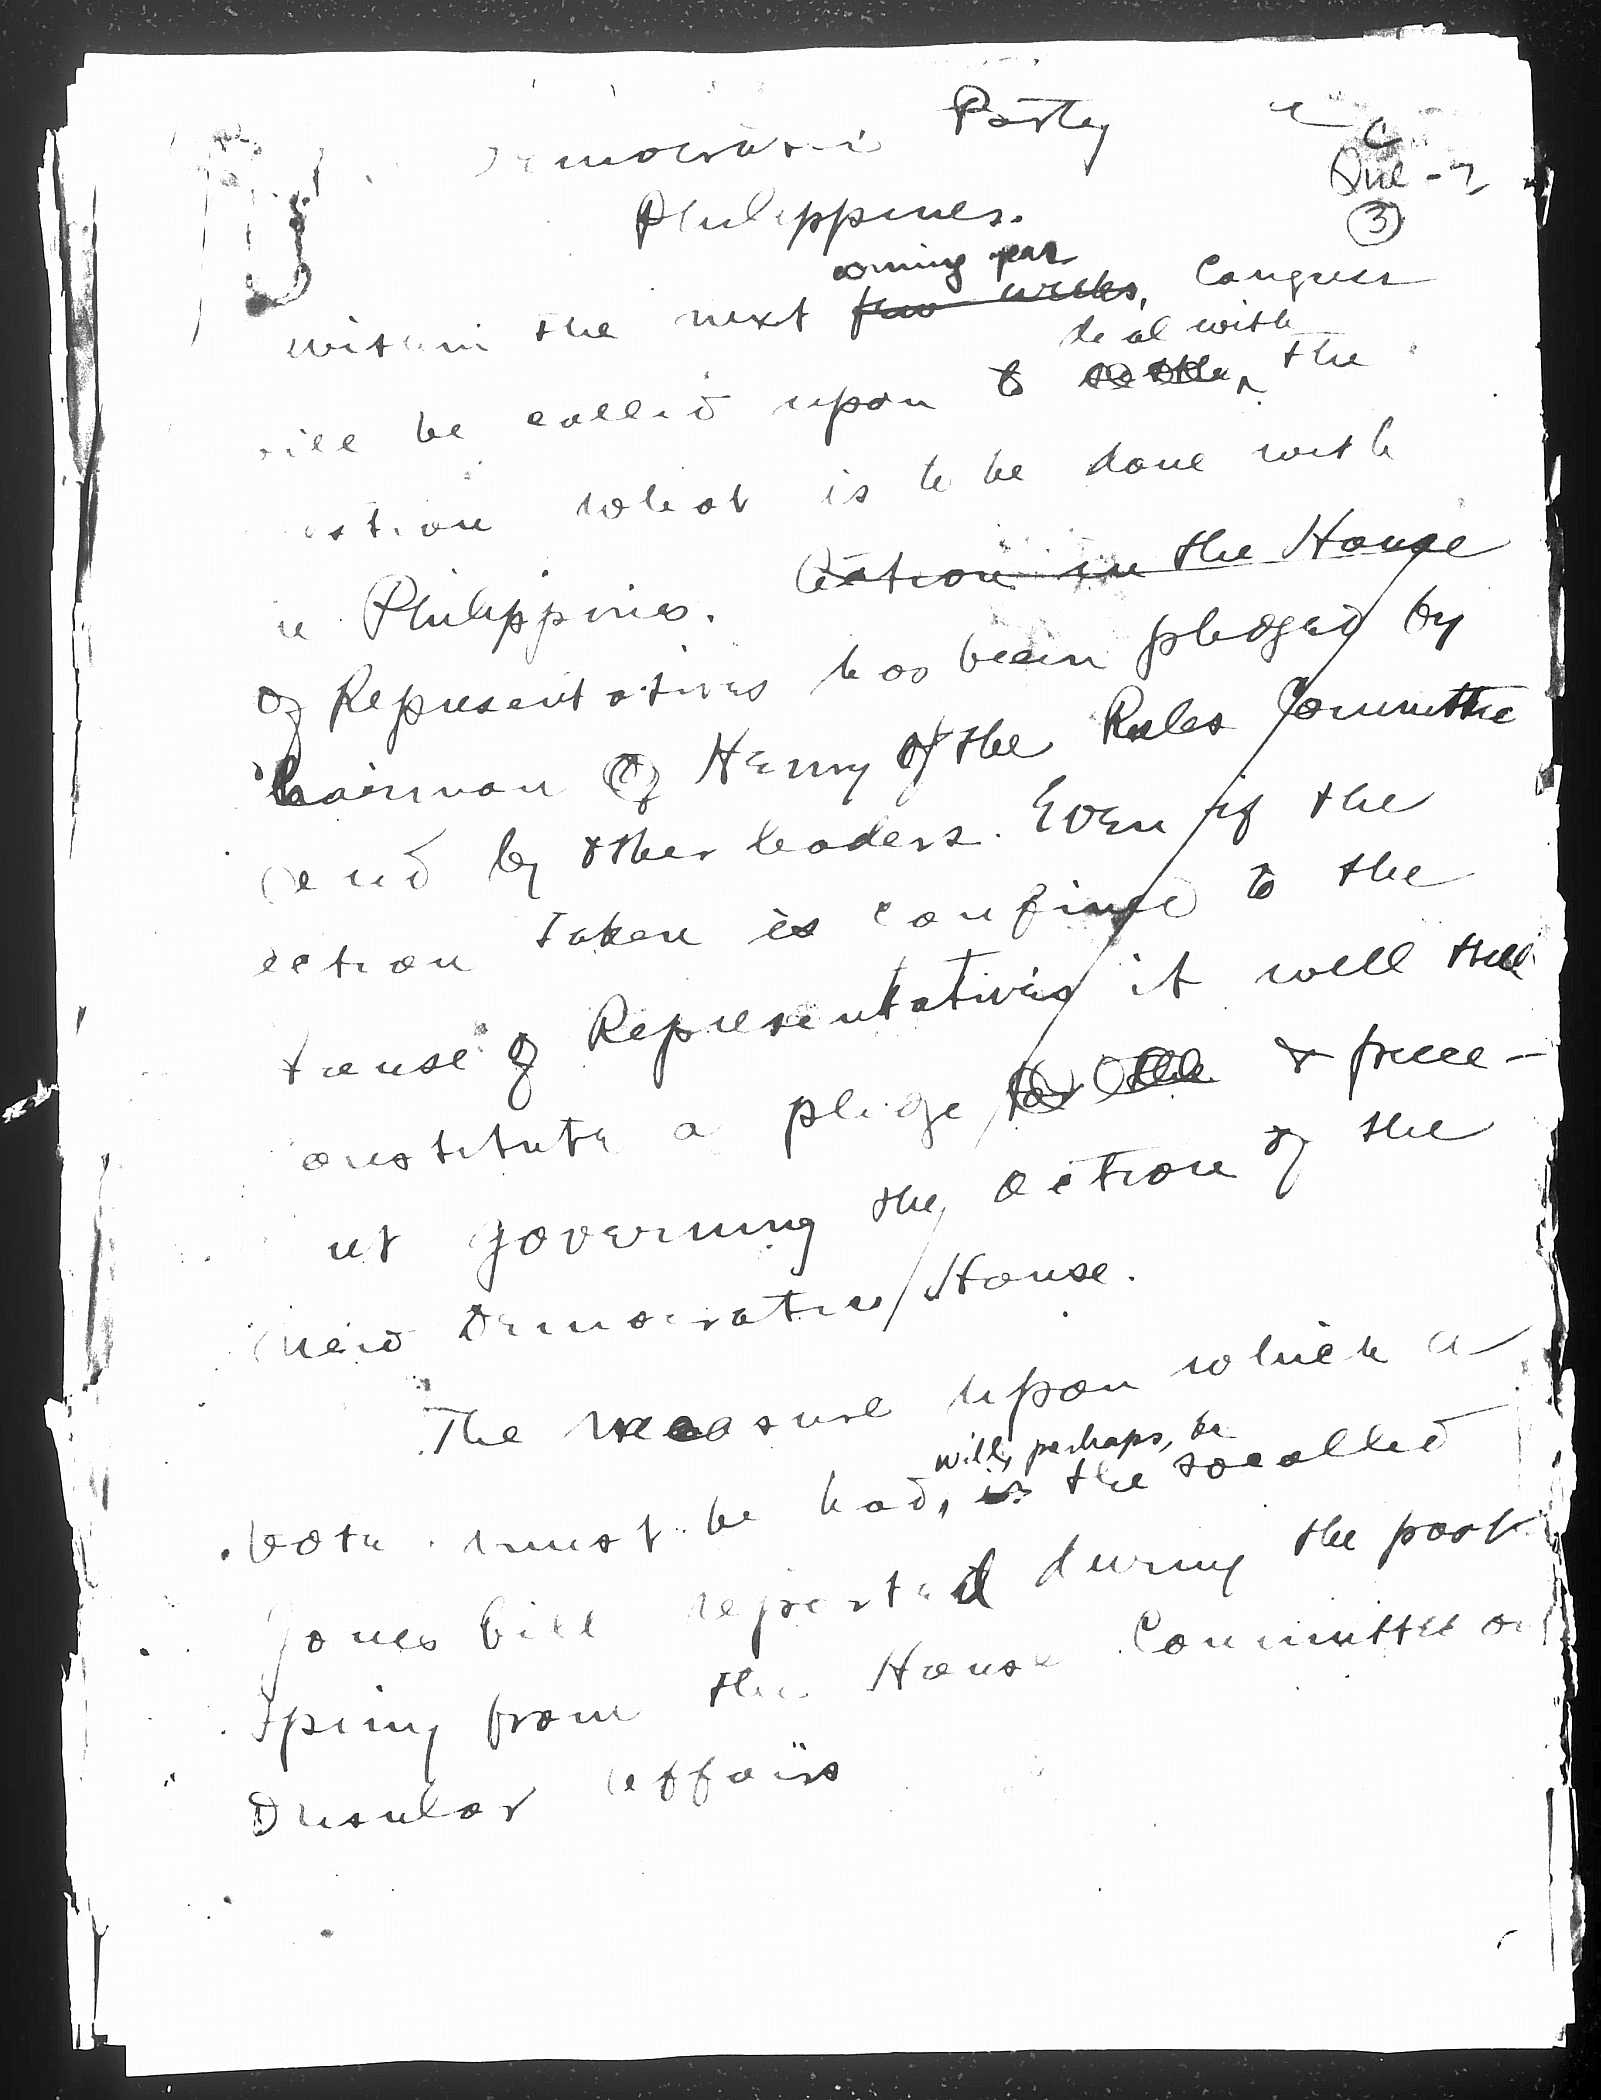 Democratic Party
Philippines.
coming year
within the next few weeks, Congress
deal with
will be called upon to settle the
estion what is to be done with
e Philippines. Action in the House
of Representatives has been pledged by
Chairman of Henry of the Rules Committee
and by other leaders. Even if the
action taken is confined to the
House of Representatives it will still
constitute a pledge & prece-
nt governing the action of the
new Democratic House.
The measure upon which a
will, perhaps, be
vote must be had, is the socalled
Jones bill reported during the past
Spring from the House Committee on
Insular affairs